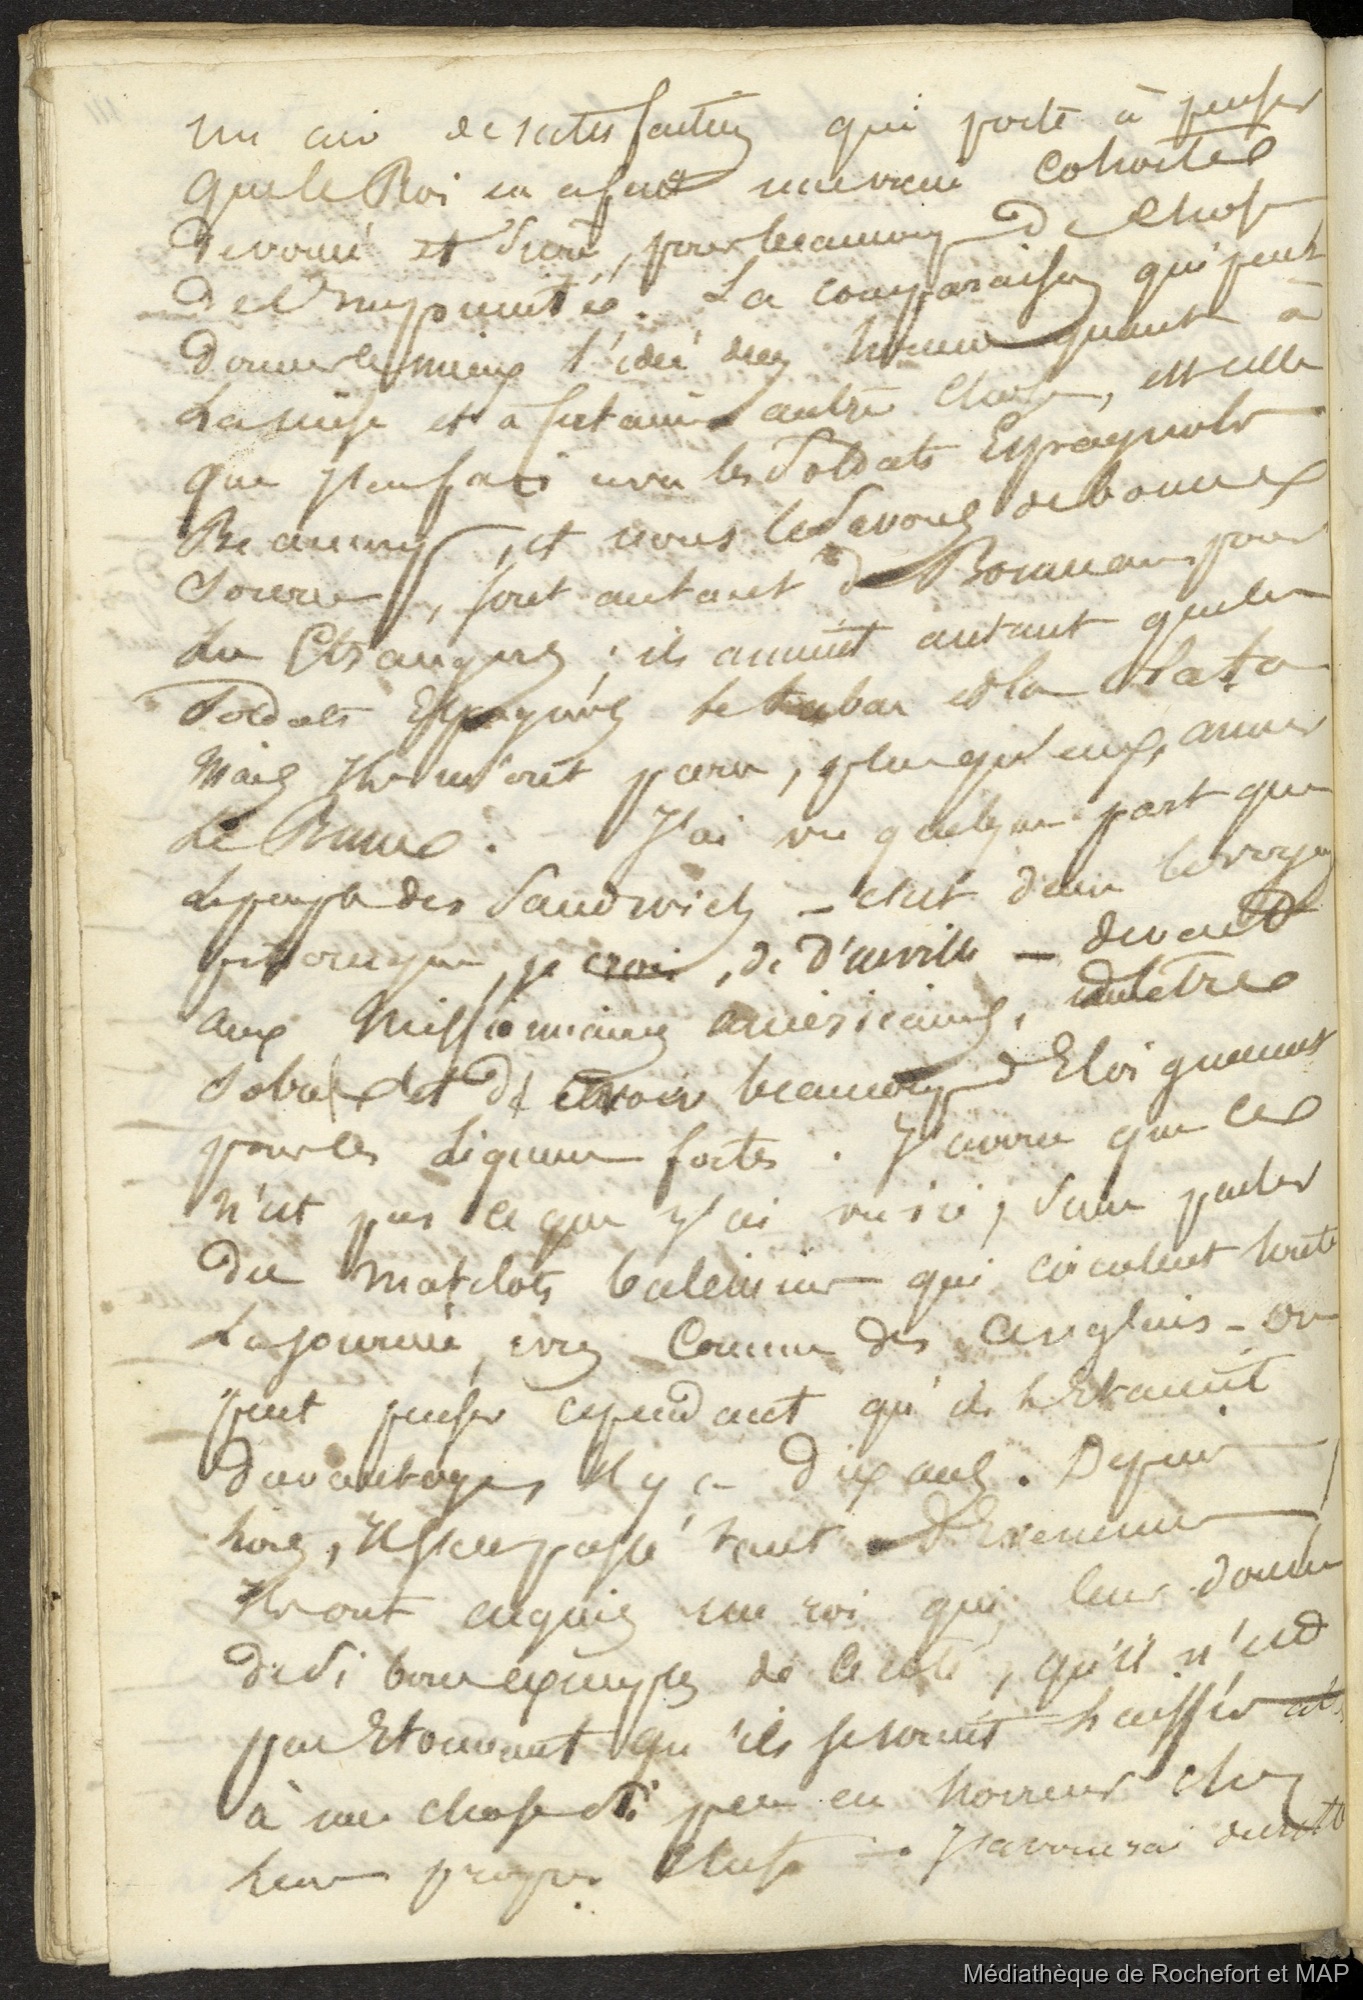 un air de satisfaction qui porte à penser
que le Roi en a fait une vraie cohorte
devoué et sure, pour beaucoup de chose
de l'impunité. La comparaison qui peut
donner le mieux l'idée des hommes quant à
la mise et a certaine autre chose, est celle
que j'en fais avec les Soldats Espagnols
Beaucoup, et nous le savons de bonnes
source, sont autant de Bourreaux pour
les Etrangers ; ils aiment autant que les
Soldats Espagnols le tabac et la
Mais Ils m'ont paru, plus qu'eux, aimer
Le Rhum. J'ai vu quelque part que
le peuple des Sandwich - c'est dans le voyage
pittoresque, je crois, de d'urville - devait
aux Missionnaires américains, d'être
Sobre et d'avoir beaucoup d'Eloignement
pour les Liqueurs fortes. J'avoue que ce
n'est pas ce que j'ai vu ici, sans parler
des matelots baleiniers qui circulent toute
La journée, ivres comme des anglais - on
peut penser cependant qu'ils l'Etaient
davantage, il y a dix ans. Depuis
lors, Il s'est passé tant d'Evenemens
Ils ont acquis un roi qui leur donne
de si bons exemples de cecité, qu'il n'est
pas Etonnant qu'ils se soient laissés
à une chose si peu en horreur chez
leurs propres chefs. J'avouerai